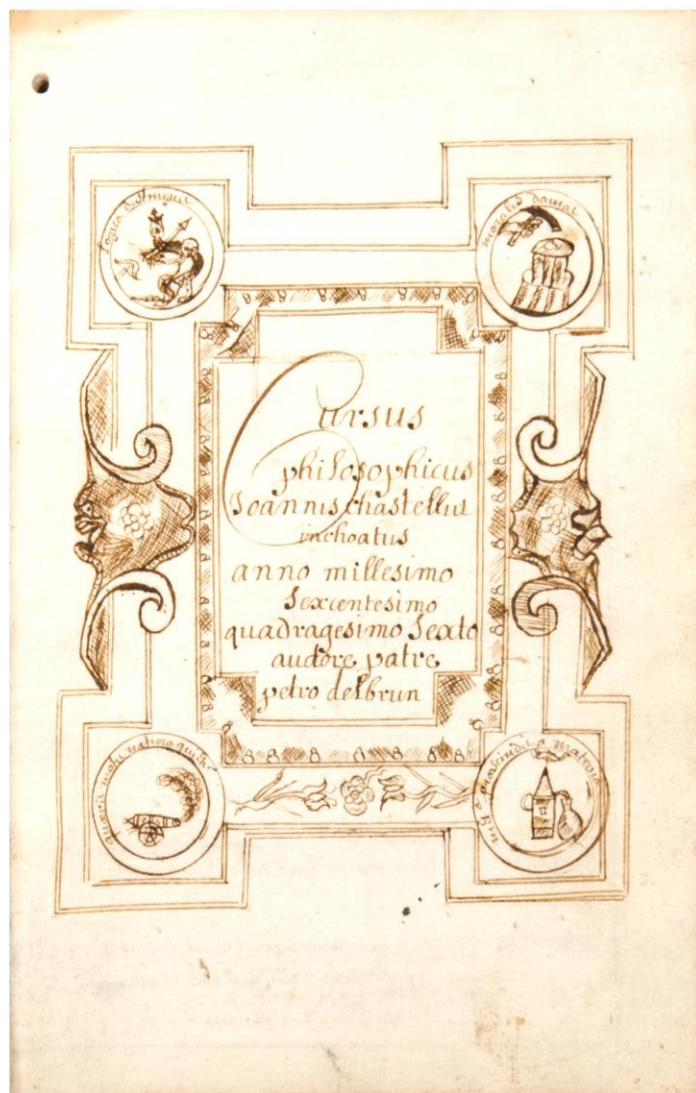 Logica distinguit
moralis domat
Cursus
philosophicus
Joannis chastellut
inchoatus
anno millesimo
Sexcentesimo
quadragesimo Sexto
audore patre
petro delbrun
motu natura
a materia